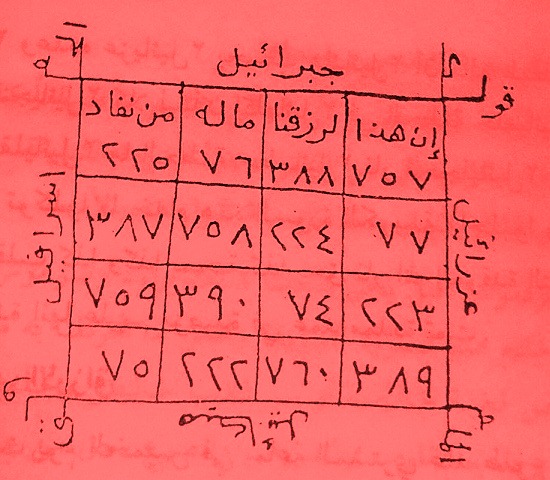 جبرائيل
قو
إن هذا لرزقنا ماله من نفاد
٧٥٧ ٣٨٨ ٧٦ ٢٢٥
عزرائيل
اسرافيل
٧٧ ٢٢٤ ٧٥٨ ٣٨٧
٢٢٣ ٧٤ ٣٩٠ ٧٥٩
٣٨٩ ٧٦٠ ٢٢٢ ٧٥
ميكائيل